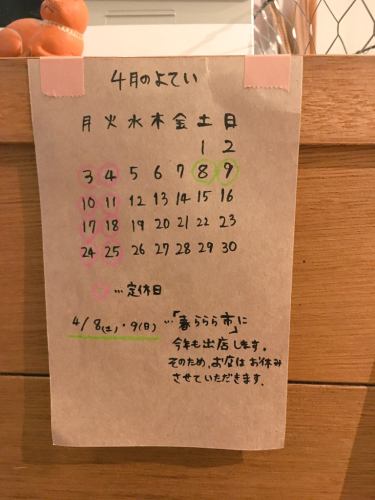 4月のよてい
月 火 水 木 金 土 日
1 2
3 4 5 6 7 8 9
10 11 12 13 14 15 16
17 18 19 20 21 22 23
24 25 26 27 28 29 30
…定休日
4/8(土)・9(日) …「春ららら市」に
今年も出店します。
そのため、お店はお休み
させていただきます。